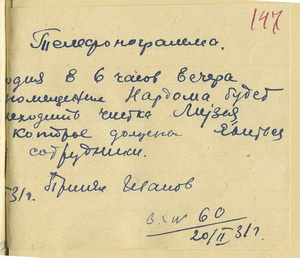 147
Телефонограмма.
одня в 6 часов вечера
помещении Нардома будет
исходить чистка Музея
которое должны явиться
сотрудники.
3/г. Принял Иванов
60
20/II 3/г.